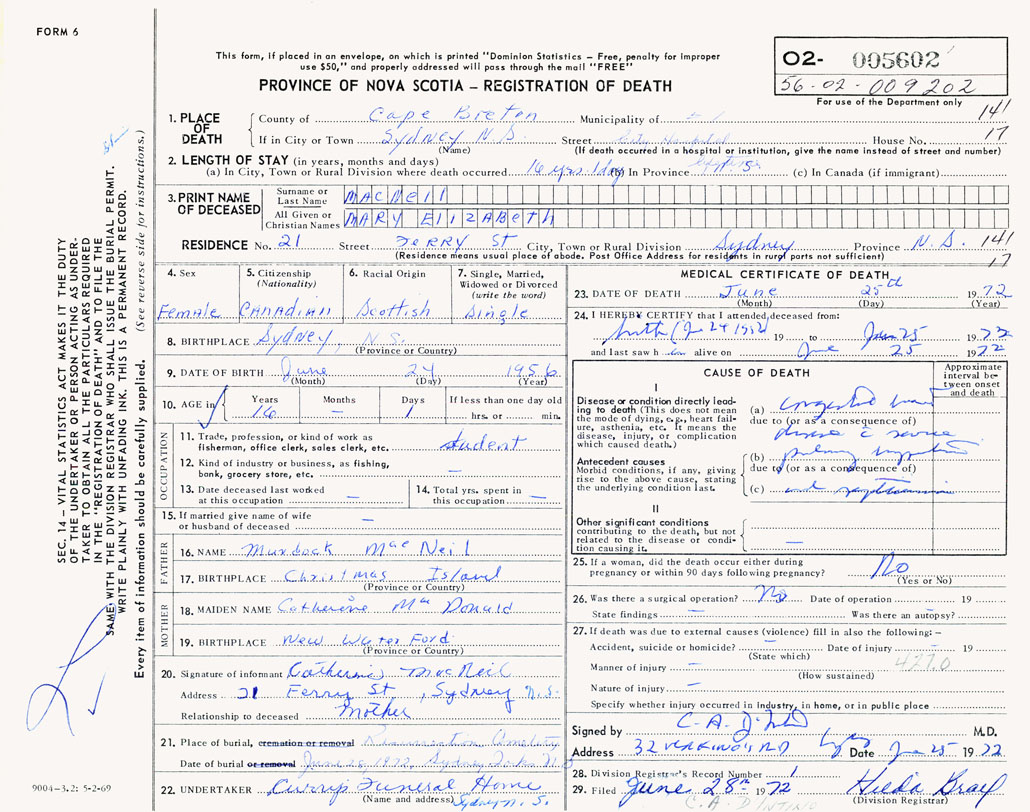 FORM 6
This form, if placed in an envelope, on which is printed "Dominion Statistics – Free, penalty for improper
use $50," and properly addressed will pass through the mail "FREE"
PROVINCE OF NOVA SCOTIA – REGISTRATION OF DEATH
O2- 005602
56-02-009202
For use of the Department only
141
17
1. PLACE OF DEATH
County of Cape Breton Municipality of
If in City or Town Sydney N.S. Street House No.
(Name) (If death occurred in a hospital or institution, give the name instead of street and number)
2. LENGTH OF STAY (in years, months and days)
(a) In City, Town or Rural Division where death occurred 16 yrs. 1 day (b) In Province (c) In Canada (if immigrant)
3. PRINT NAME OF DECEASED
Surname or Last Name MACNEIL
All Given or Christian Names MARY ELIZABETH
RESIDENCE No. 21 Street FERRY ST City, Town or Rural Division Sydney Province N.S. 141
(Residence means usual place of abode. Post Office Address for residents in rural parts not sufficient) 17
4. Sex Female
5. Citizenship (Nationality) CANADIAN
6. Racial Origin Scottish
7. Single, Married, Widowed or Divorced (write the word) Single
8. BIRTHPLACE Sydney, N.S.
(Province or Country)
9. DATE OF BIRTH June 24 1956
(Month) (Day) (Year)
10. AGE in Years 16 Months – Days 1 If less than one day old hrs. or min.
OCCUPATION
11. Trade, profession, or kind of work as
fisherman, office clerk, sales clerk, etc. student
12. Kind of industry or business, as fishing,
bank, grocery store, etc. –
13. Date deceased last worked
at this occupation –
14. Total yrs. spent in
this occupation –
15. If married give name of wife
or husband of deceased –
FATHER
16. NAME Murdock MacNeil
17. BIRTHPLACE Christmas Island
(Province or Country)
MOTHER
18. MAIDEN NAME Catherine MacDonald
19. BIRTHPLACE New Water Ford
(Province or Country)
20. Signature of informant Catherine MacNeil
Address 21 Ferry St., Sydney N.S.
Relationship to deceased Mother
21. Place of burial, cremation or removal Cemetery
Date of burial or removal June 28, 1972, Sydney
22. UNDERTAKER Funeral Home
(Name and address) Sydney N.S.
9004-3.2: 5-2-69
MEDICAL CERTIFICATE OF DEATH
23. DATE OF DEATH June 25th 1972
(Month) (Day) (Year)
24. I HEREBY CERTIFY that I attended deceased from:
19 to June 25 1972
and last saw h alive on June 25 1972
CAUSE OF DEATH
Approximate interval between onset and death
I
Disease or condition directly leading
to death (This does not mean
the mode of dying, e.g., heart failure,
asthenia, etc. It means the
disease, injury, or complication
which caused death.)
(a)
due to (or as a consequence of)
Antecedent causes
Morbid conditions, if any, giving
rise to the above cause, stating
the underlying condition last.
(b)
due to (or as a consequence of)
(c)
II
Other significant conditions
contributing to the death, but not
related to the disease or condition
causing it. –
25. If a woman, did the death occur either during
pregnancy or within 90 days following pregnancy? No
(Yes or No)
26. Was there a surgical operation? No Date of operation – 19
State findings – Was there an autopsy? –
27. If death was due to external causes (violence) fill in also the following: –
Accident, suicide or homicide? – Date of injury – 19
(State which)
Manner of injury – 427.0
(How sustained)
Nature of injury –
Specify whether injury occurred in industry, in home, or in public place
Signed by C. A. M.D.
Address 32 Date June 25 1972
28. Division Registrar's Record Number
29. Filed June 28th 1972 Hilda
(Division Registrar)
SEC. 14 – VITAL STATISTICS ACT MAKES IT THE DUTY
OF THE UNDERTAKER OR PERSON ACTING AS UNDERTAKER
TO OBTAIN ALL THE PARTICULARS REQUIRED
IN THE "REGISTRATION OF DEATH" AND TO FILE THE
SAME WITH THE DIVISION REGISTRAR WHO SHALL ISSUE THE BURIAL PERMIT.
WRITE PLAINLY WITH UNFADING INK. THIS IS A PERMANENT RECORD.
Every item of information should be carefully supplied. (See reverse side for instructions.)